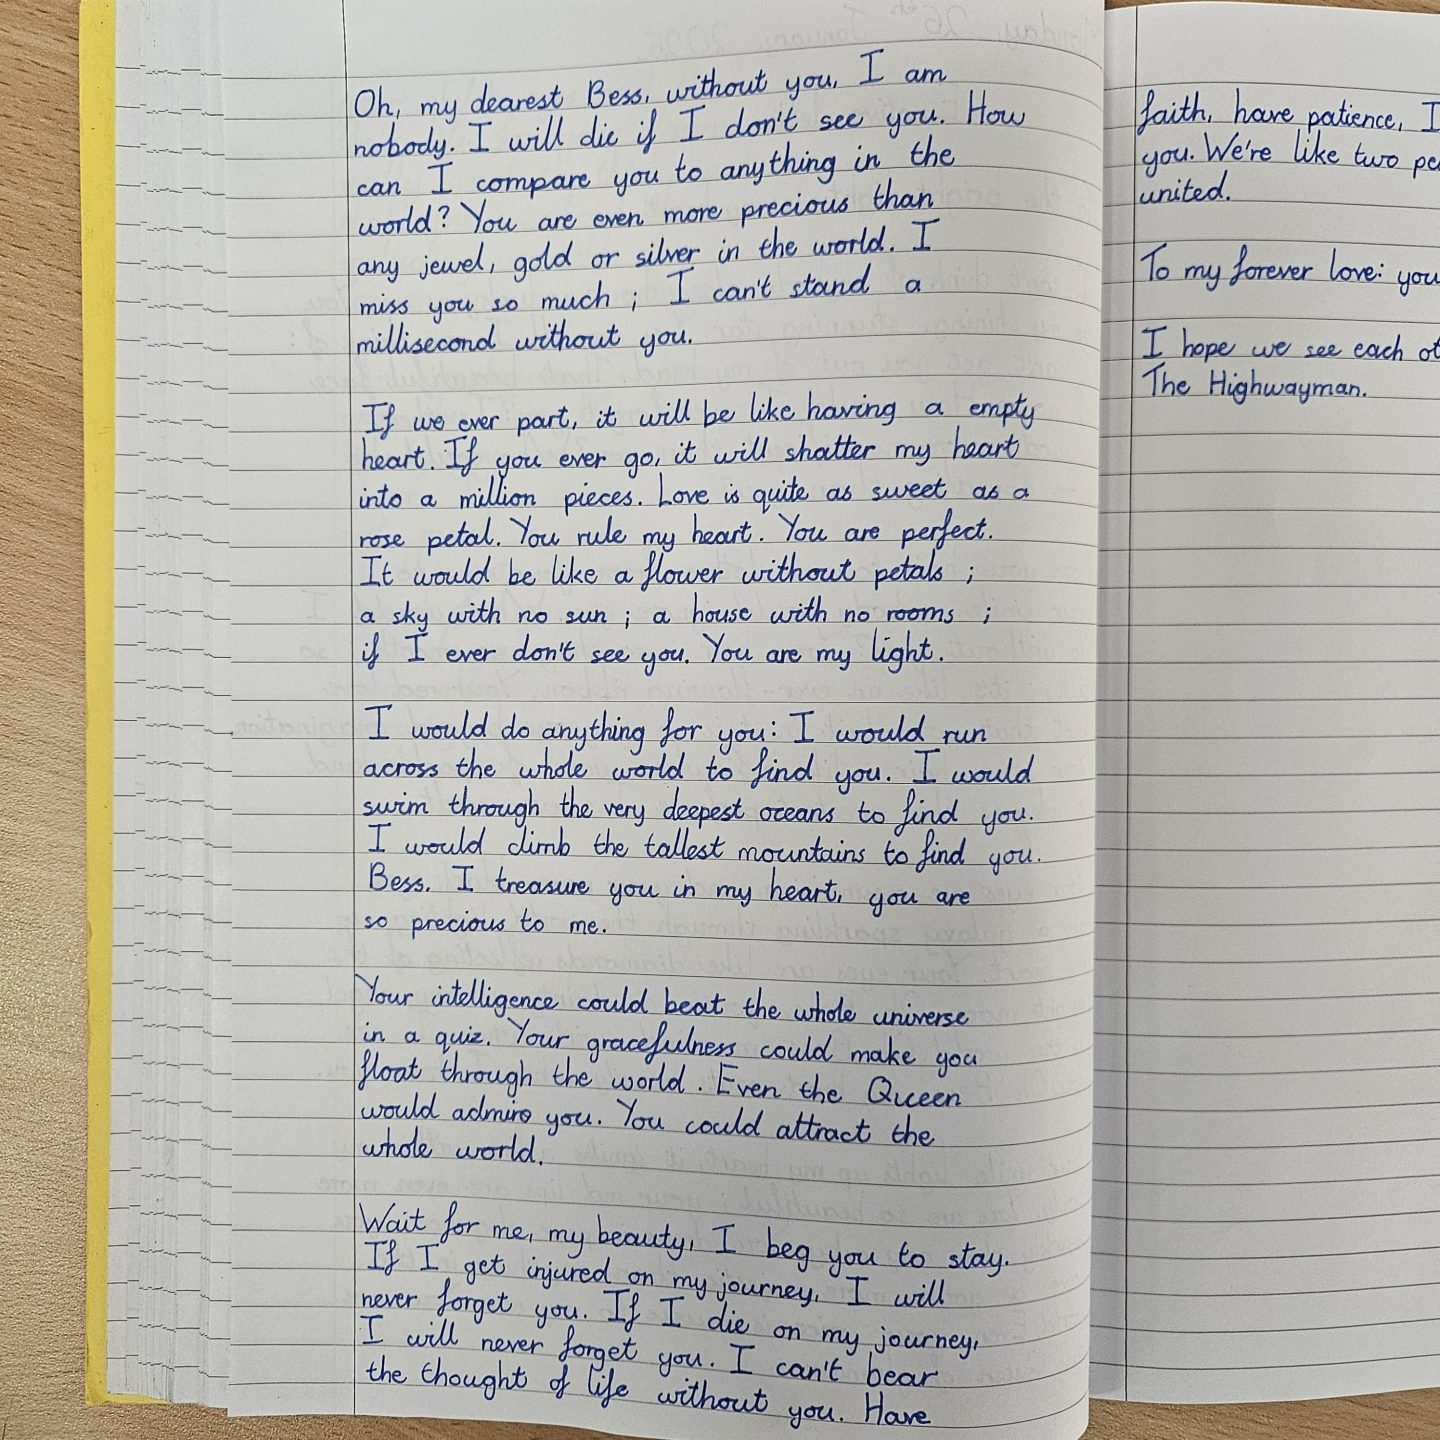 Oh, my dearest Bess, without you, I am
nobody. I will die if I don't see you. How
can I compare you to anything in the
world? You are even more precious than
any jewel, gold or silver in the world. I
miss you so much ; I can't stand a
millisecond without you.
If we ever part, it will be like having a empty
heart. If you ever go, it will shatter my heart
into a million pieces. Love is quite as sweet as a
rose petal. You rule my heart. You are perfect.
It would be like a flower without petals ;
a sky with no sun ; a house with no rooms ;
if I ever don't see you. You are my light.
I would do anything for you: I would run
across the whole world to find you. I would
swim through the very deepest oceans to find you.
I would climb the tallest mountains to find you.
Bess, I treasure you in my heart, you are
so precious to me.
Your intelligence could beat the whole universe
in a quiz. Your gracefulness could make you
float through the world. Even the Queen
would admire you. You could attract the
whole world.
Wait for me, my beauty, I beg you to stay.
If I get injured on my journey, I will
never forget you. If I die on my journey,
I will never forget you. I can't bear
the thought of life without you. Have
faith, have patience, I
you. We're like two
united.
To my forever love: you
I hope we see each
The Highwayman.